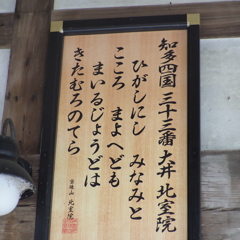 知多四国 三十三番 大井 北室院
ひがしにし みなみと
こころ まよへども
まいるじょうどは
きたむろのてら
北室院